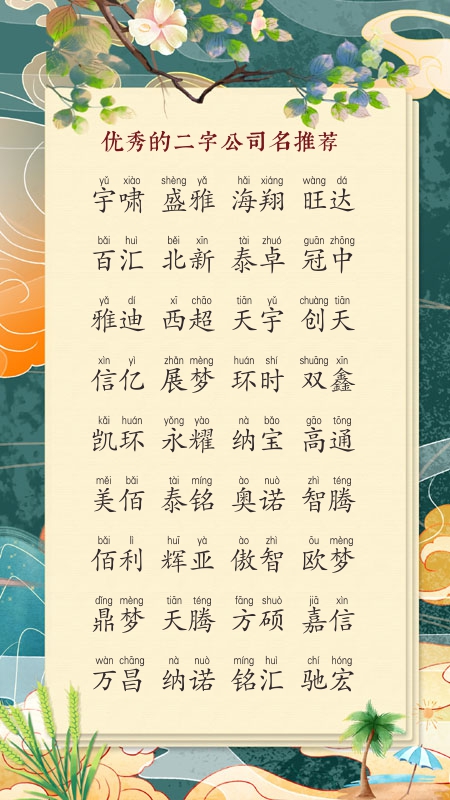 优秀的二字公司名推荐
yǔ xiào shèng yǎ hǎi xiáng wàng dá
宇啸 盛雅 海翔 旺达
bǎi huì běi xīn tài zhuó guān zhōng
百汇 北新 泰卓 冠中
yǎ dí xī chāo tiān yǔ chuàng tiān
雅迪 西超 天宇 创天
xìn yì zhǎn mèng huán shí shuāng xīn
信亿 展梦 环时 双鑫
kǎi huán yǒng yào nà bǎo gāo tōng
凯环 永耀 纳宝 高通
měi bǎi tài míng ào nuò zhì téng
美佰 泰铭 奥诺 智腾
bǎi lì huī yà ào zhì ōu mèng
佰利 辉亚 傲智 欧梦
dǐng mèng tiān téng fāng shuò jiā xìn
鼎梦 天腾 方硕 嘉信
wàn chāng nà nuò míng huì chí hóng
万昌 纳诺 铭汇 驰宏